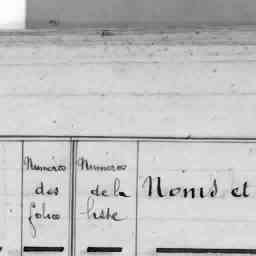 Numéros
des
folios
Numéros
de la
liste
Noms et